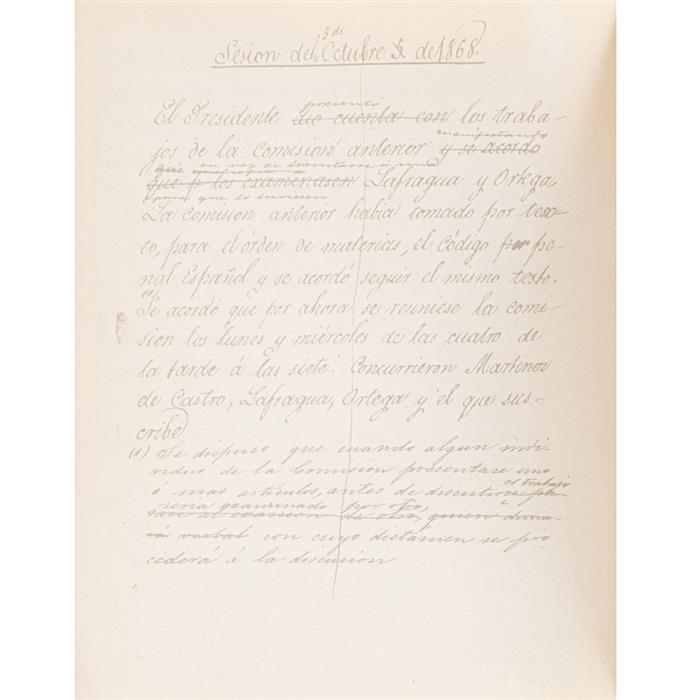 3 de
Sesion del Octubre 5 de 1868.
presentó
El Presidente dio cuenta con los traba-
jos de la comision anterior y se acordo
manifestando
en vez de
que p los examinasen Lafragua y Ortega,
para que lo
La comision anterior habia tomado por tex-
to, para el órden de materias, el código por pe-
nal Español y se acordó seguir el mismo texto.
(1)
Se acordó que por ahora se reuniese la comi-
sion los lunes y miércoles de las cuatro de
la tarde á las siete. Concurrieron Martinez
de Castro, Lafragua, Ortega y el que sus-
cribe
(1) Se dispuso que cuando algun indi-
viduo de la Comision presentase uno
ó mas artículos, antes de discutirse
el trabajo
seria examinado por otro,
al examen de otro, quien
verbal con cuyo dictamen se pro
cederá á la discusion